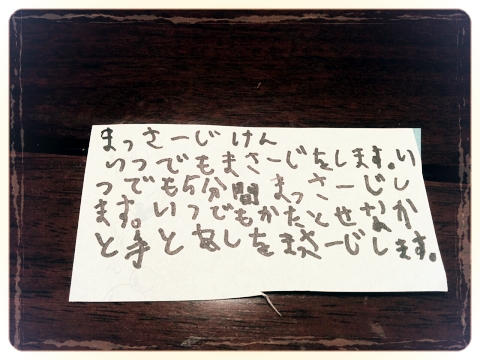 まっさーじけん
いつでもまさーじをします。い
つでも5分間まっさーじし
ます。いつでもかたとせなか
と手とあしをまさーじします。